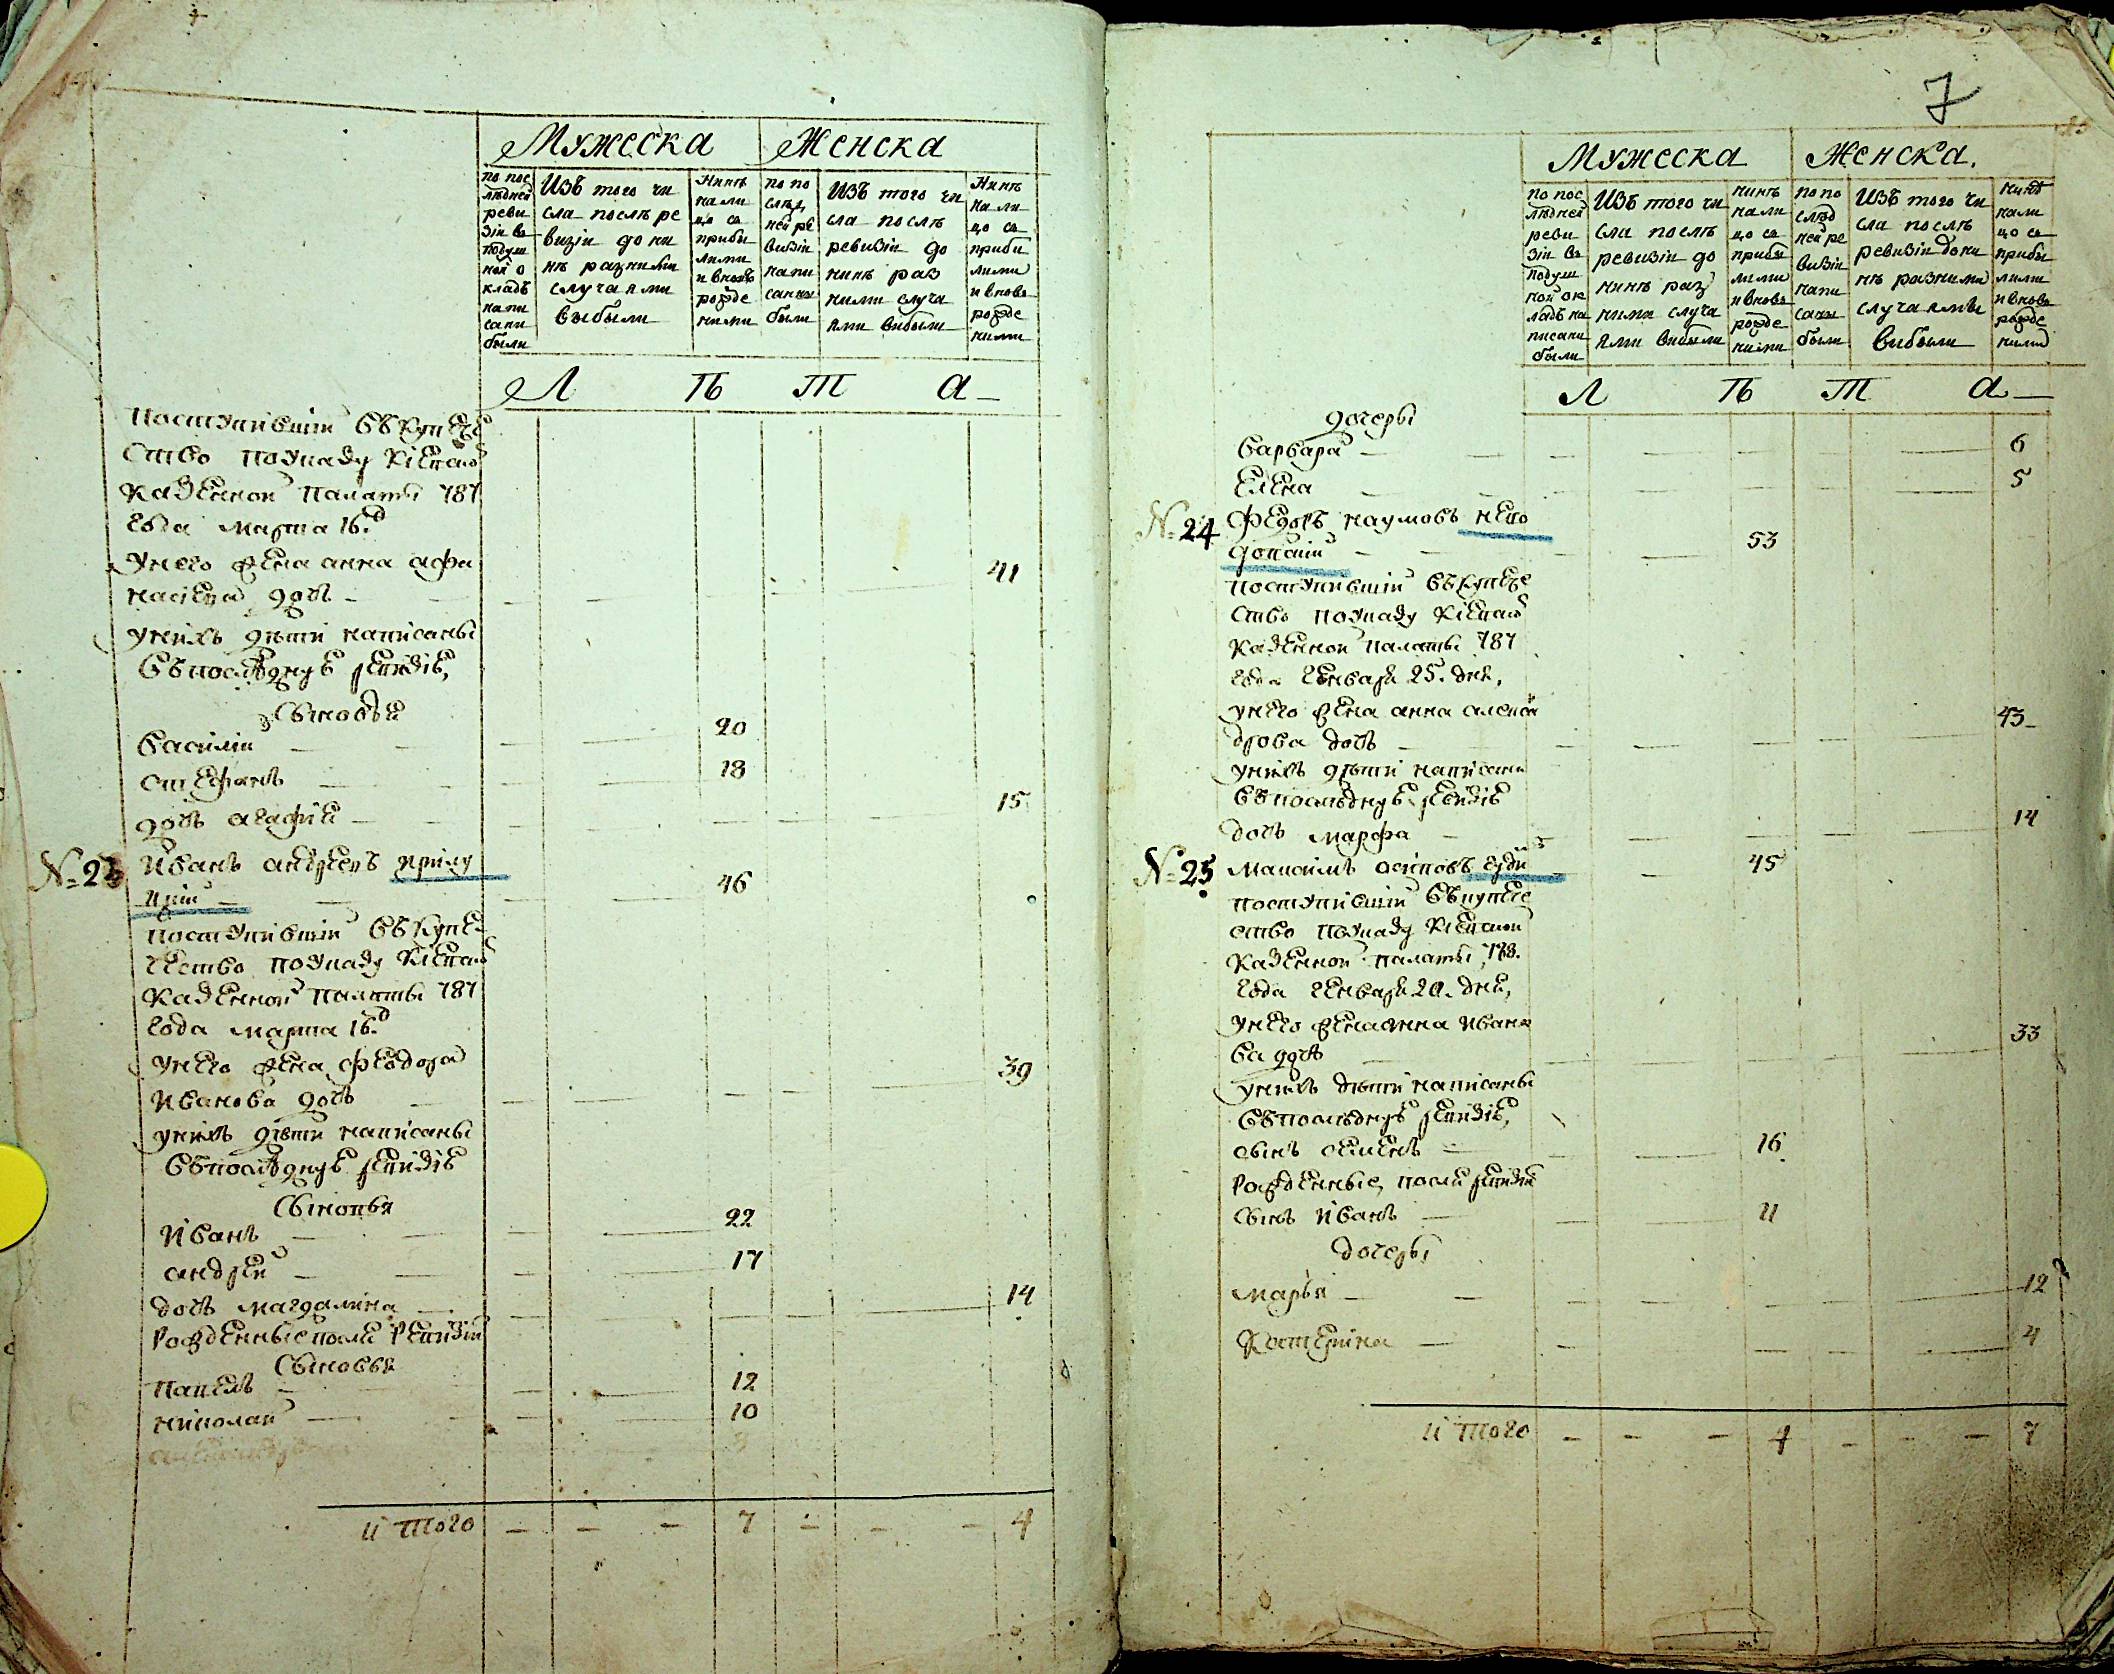 Мужеска Женска
по пос
лѣдней
реви
зіи въ
подуш
ной о
кладъ
напи
сани
были
Изъ того чи
сла послѣ ре
визіи до ни
нѣ разними
случаями
выбыли
Нинѣ
нали
цо съ
прибы
лими
и вновь
рожде
ними
по по
слѣд
ней ре
визіи
напи
саны
были
Изъ того чи
сла послѣ
ревизіи до
нинѣ раз
ними случа
ями вибыли
Нинѣ
нали
цо съ
приби
лими
и вновь
рожде
ними
Л ѣ т а
Поступившій въ купече
ство по указу Кіевской
казенной палаты 787
года марта 16.
у него жена анна афа
насіева дочь 41
у нихъ дѣти написаны
въ последней ревизіе,
сыновья
василій 20
стефанъ 18
дочь агафія 15
№ 23 Иванъ андреевъ
46
поступившій въ купе
чество по указу Кіевской
казенной палаты 787
года марта 16.
у него жена феодора
Иванова дочь 39
у нихъ дѣти написаны
въ последней ревизіе
сыновья
Иванъ 22
андрей 17
дочь магдалина 14
рожденные посли ревизіи
сыновья
павелъ 12
николай 10
Итого 7 4
7
Мужеска Женска.
по пос
лѣдней
реви
зіи въ
подуш
ной ок
ладъ на
писани
были
Изъ того чи
сла послѣ
ревизіи до
нинѣ раз
ними случа
ями вибыли
нинѣ
нали
цо съ
прибы
лими
и вновь
рожде
ними
по по
слѣд
ней ре
визіи
напи
саны
были
Изъ того чи
сла послѣ
ревизіи до ни
нѣ разними
случаями
вибыли
нинѣ
нали
цо съ
прибы
лими
и вновь
рожде
ними
Л ѣ т а
дочеры
варвара 6
елена 5
№ 24 Федоръ наумовъ
53
поступившій въ купече
ство по указу Кіевской
казенной палаты 787
года генваря 25. дня,
у него жена анна алекса
дрова дочь 43
у нихъ дѣти написани
въ последней ревизіе
дочь марфа 14
№ 25 Максимъ осиповъ 45
поступившій въ купече
ство по указу Кіевской
казенной палаты 178.
года генваря 20. дня,
у него жена анна Ивано
ва дочь 33
у нихъ дѣти написаны
въ последней ревизіе,
сынъ семенъ 16
рожденные, посли ревизіи
сынъ Иванъ 11
дочеры
марья 12
Катерина 4
Итого 4 7